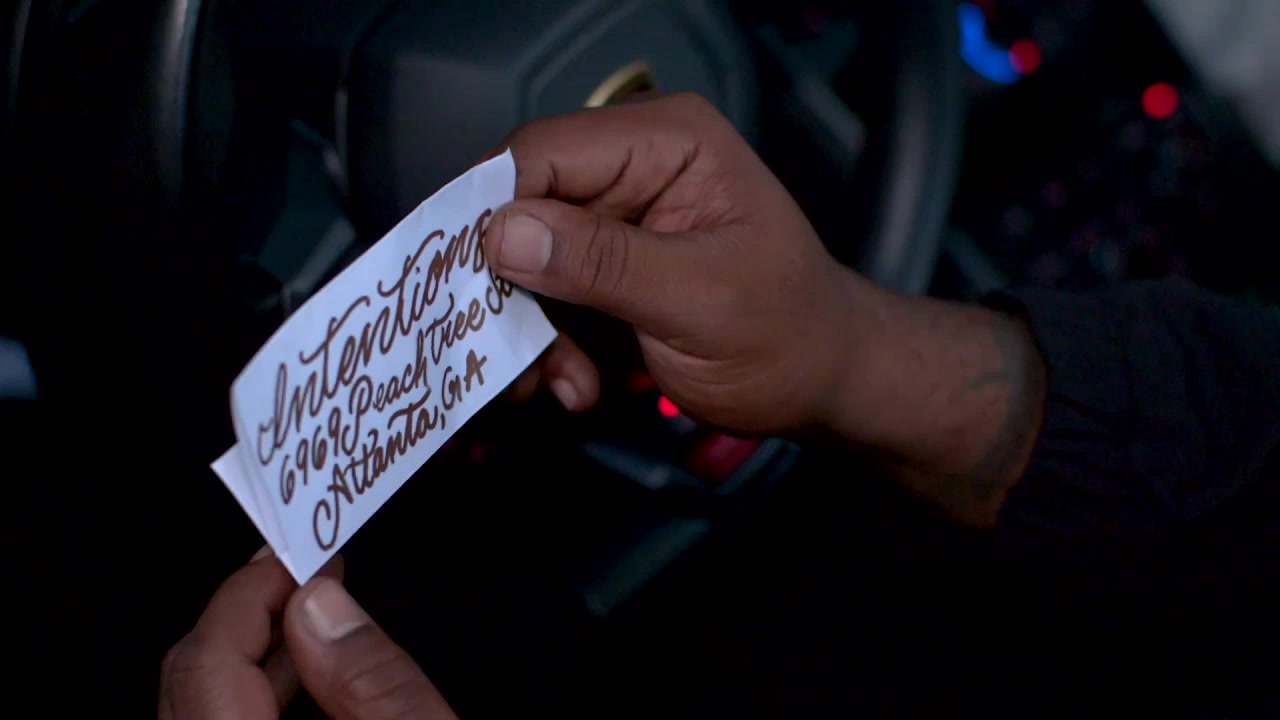 Intentions
6969 Peachtree
Atlanta, GA